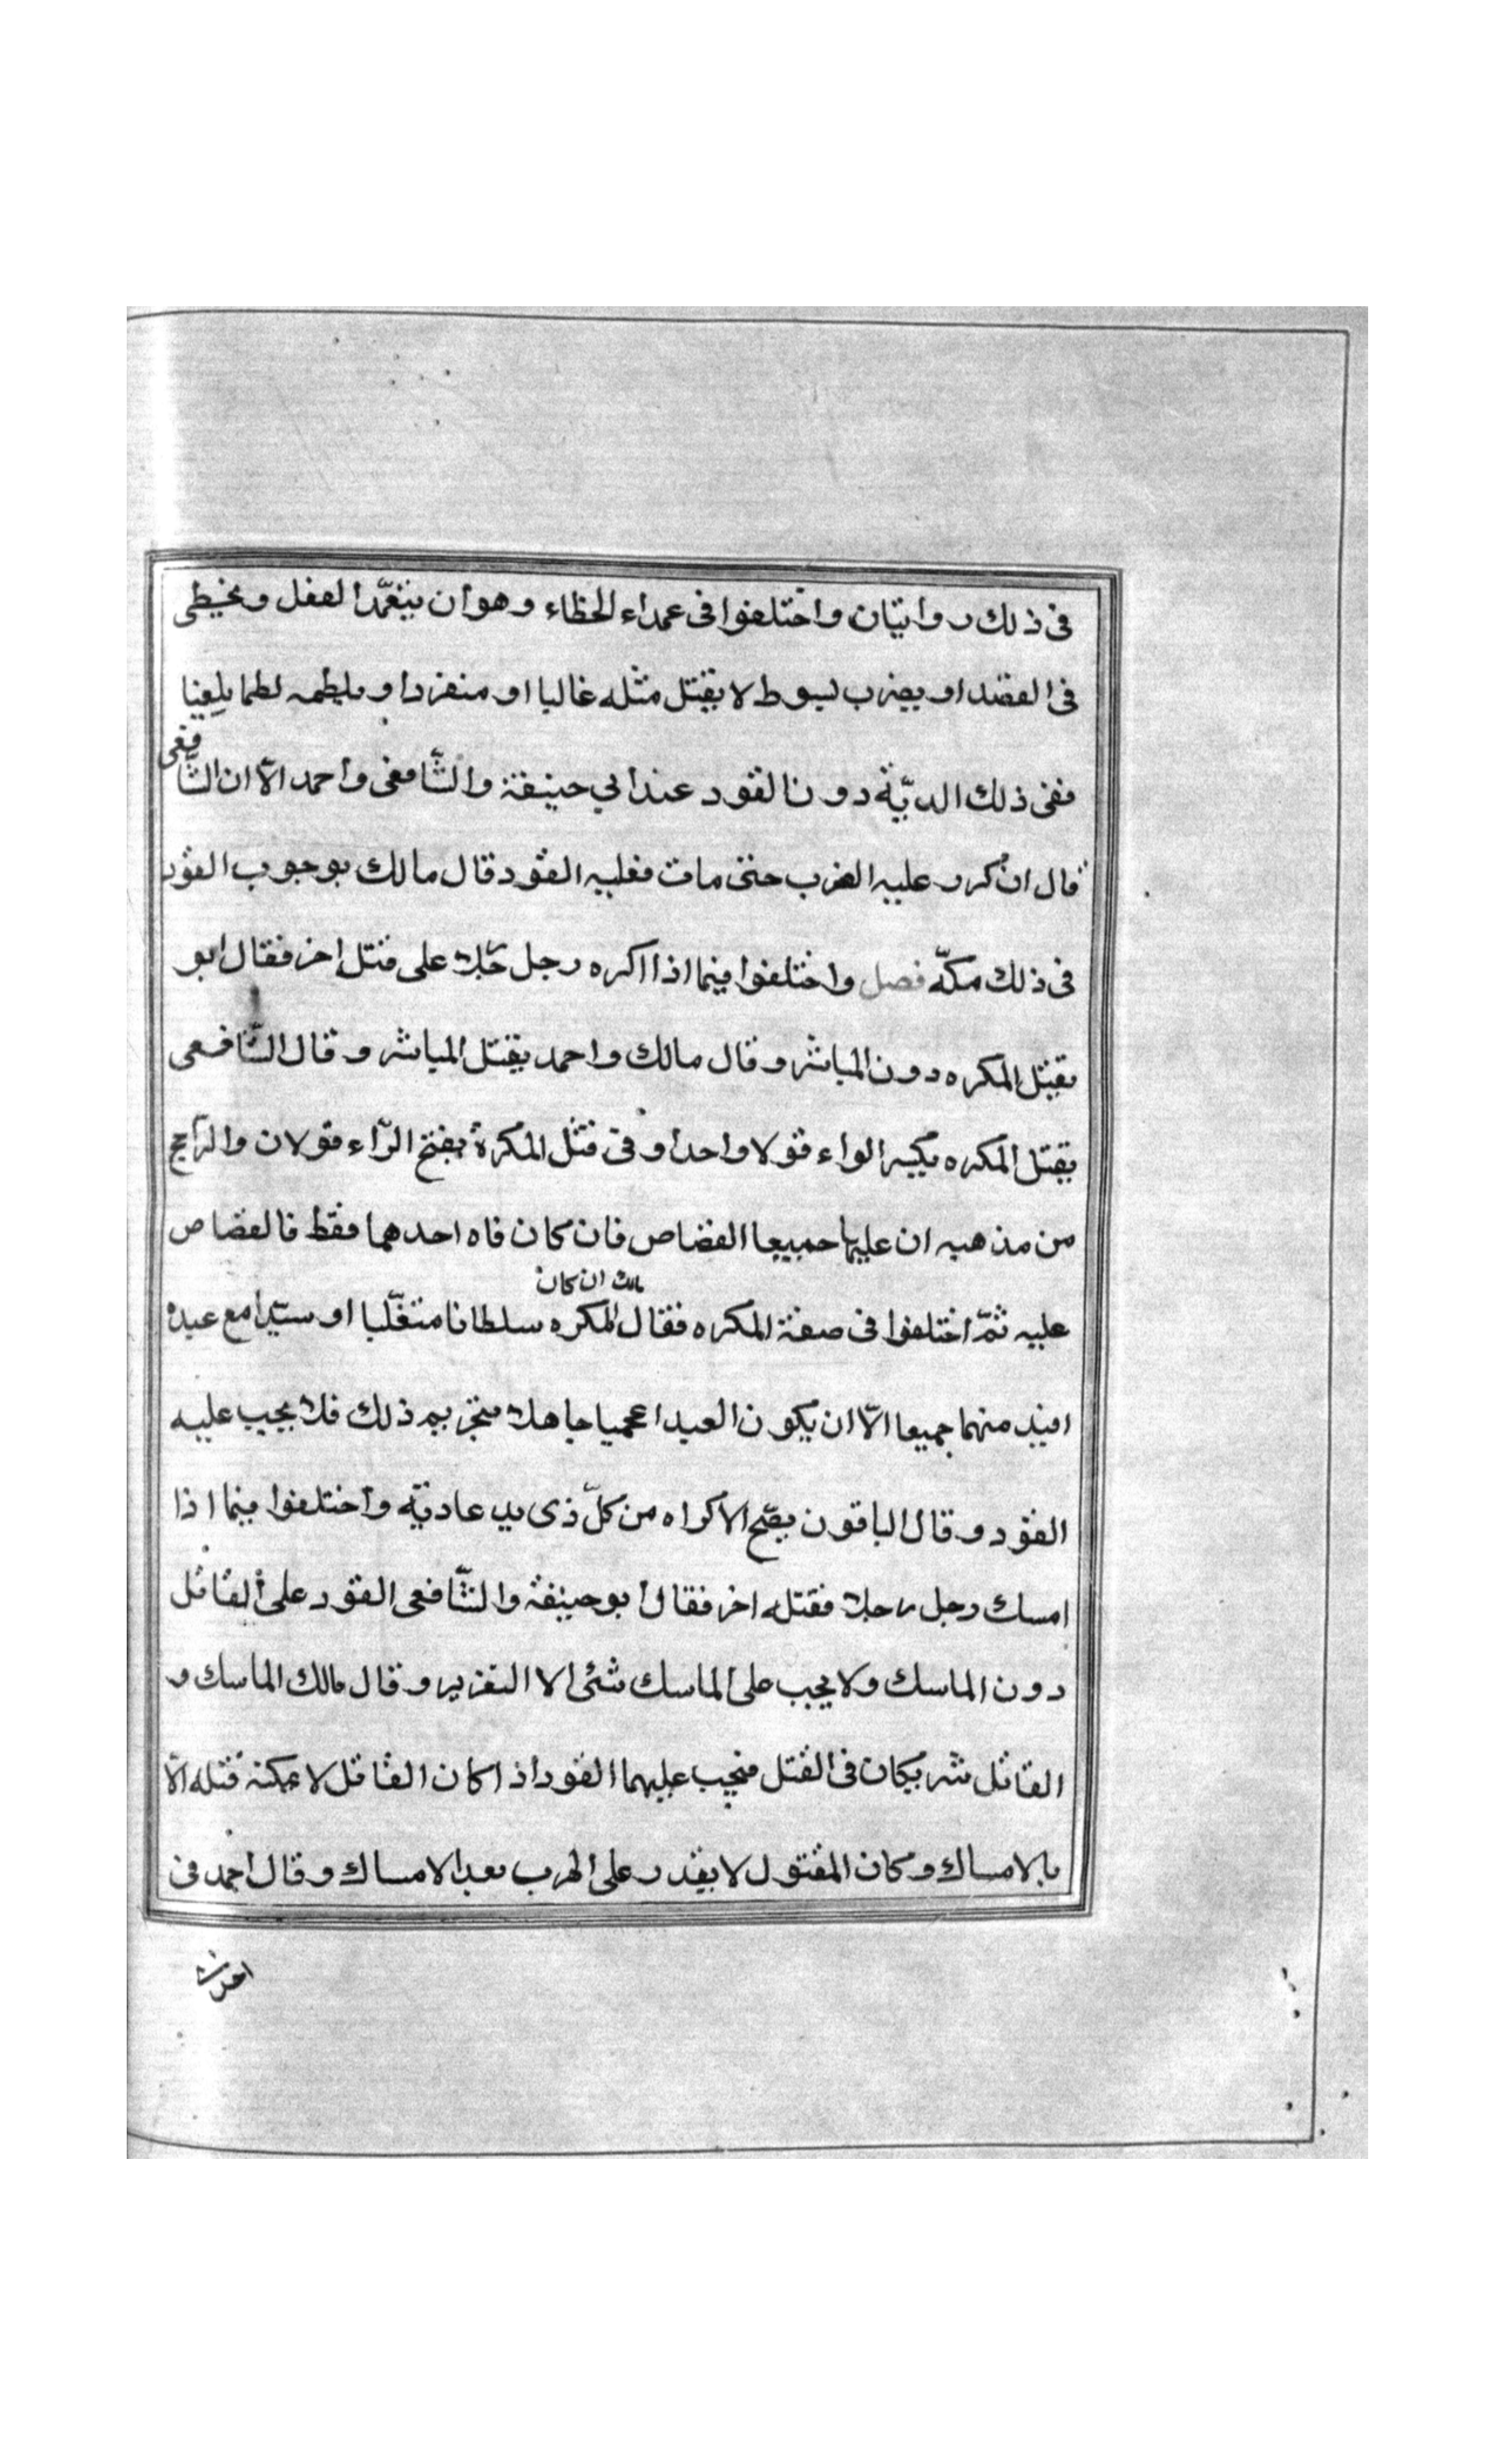 فى ذلك روايتان واختلفوا فى عمداء الخطاء وهو ان يتعمّد الفعل ويخطى
فى القصد او يضرب بسوط لا يقتل مثله غالبا او منفردا ويلطمه لطما بليغا
ففى ذلك الديّة دون القود عند ابي حنيفة والشّافعى واحمد الّا ان الشّافعى
قال ان كرر عليه الضرب حتى مات فعليه القود قال مالك بوجوب القود
فى ذلك مكلّه فصل واختلفوا فيما اذا اكره رجل رجلا على قتل اخر فقال ابو
يقتل المكره دون المباشر وقال مالك واحمد يقتل المباشر وقال الشّافعى
يقتل المكره بكسر الواء قولا واحدا وفى قتل المكره بفتح الرّاء قولان والرّاجح
من مذهبه ان عليهما جميعا القصاص فان كان فاه احدهما فقط فالقصاص
عليه ثمّ اختلفوا فى صفة المكره فقال مالك ان كان المكره سلطانا متغلّبا او سيّدا مع عبده
اقيد منهما جميعا الّا ان يكون العبد اعجميا جاهلا بتحريم ذلك فلا يجب عليه
القود وقال الباقون يصّح الاكراه من كلّ ذى يد عاديّه واختلفوا فيما اذا
امسك رجل رجلا فقتله اخر فقال ابو حنيفة والشّافعى القود على القاتل
دون الماسك ولا يجب على الماسك شئى الا التعزير وقال مالك الماسك و
القاتل شريكان فى القتل فيجب عليهما القود اذا كان القاتل لا يمكنه قتله الّا
بالامساك وكان المقتول لا يقدر على الهرب بعد الامساك وقال احمد فى